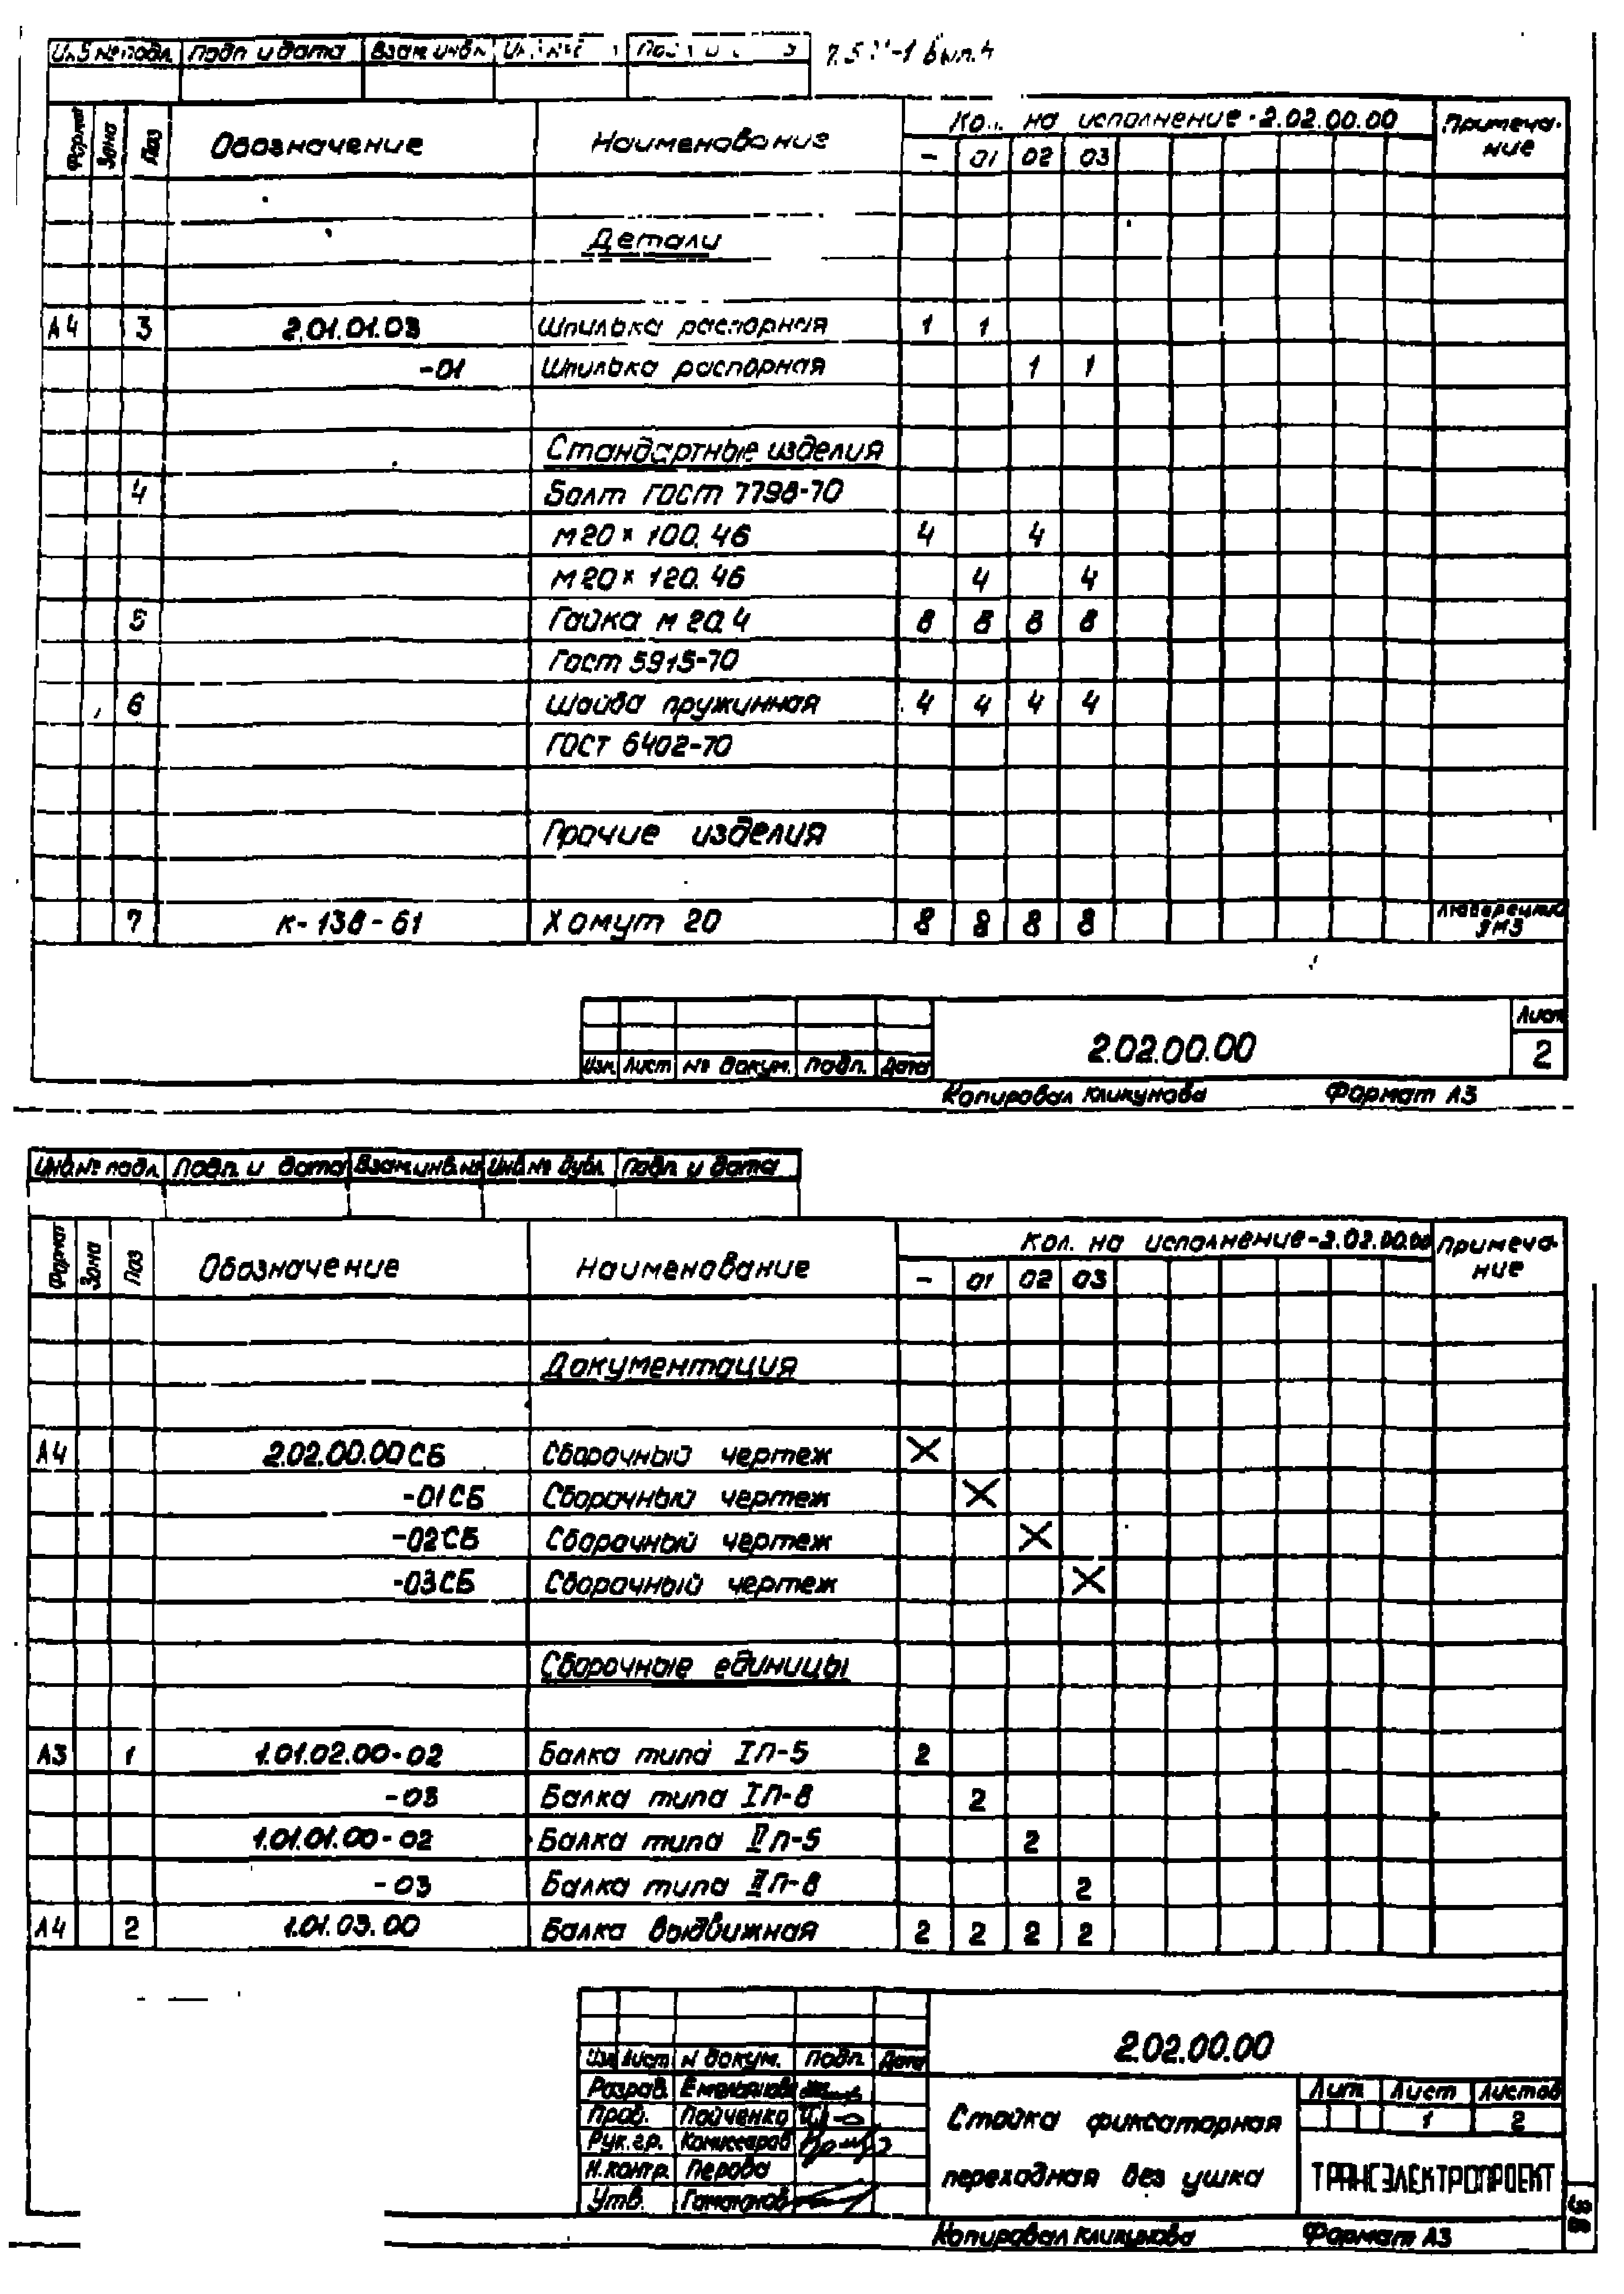 Инв № подл. Подп и дата Взам инв №
вып. 4
Формат Зона Поз Обозначение Наименование Кол. на исполнение - 2.02.00.00 Примеча-
ние
- 01 02 03
Детали
А4 3 2.01.01.03 Шпилька распорная 1 1
-01 Шпилька распорная 1 1
Стандартные изделия
4 Болт ГОСТ 7798-70
М20 × 100.46 4 4
М20 × 120.46 4 4
5 Гайка М 20.4 8 8 8 8
Гост 5915-70
6 Шайба пружинная 4 4 4 4
ГОСТ 6402-70
Прочие изделия
7 К-138-61 Хомут 20 8 8 8 8
2.02.00.00 Лист
2
Изм. Лист № докум. Подп. Дата
Копировал Кликунова Формат А3
Инв.№ подл. Подп. и дата Взам.инв.№ Инв.№ дубл. Подп. и дата
Формат Зона Поз Обозначение Наименование Кол. на исполнение-2.02.00.00 Примеча-
ние
- 01 02 03
Документация
А4 2.02.00.00СБ Сборочный чертеж X
-01СБ Сборочный чертеж X
-02СБ Сборочный чертеж X
-03СБ Сборочный чертеж X
Сборочные единицы
А3 1 1.01.02.00-02 Балка типа IП-5 2
-03 Балка типа IП-8 2
1.01.01.00-02 Балка типа IIП-5 2
-03 Балка типа IIП-8 2
А4 2 1.01.03.00 Балка выдвижная 2 2 2 2
2.02.00.00
Изм Лист N докум. Подп. Дата
Разраб. Емельянова
Пров. Пайченко
Рук.гр. Комиссаров
Н.контр. Перова
Утв.
Стойка фиксаторная
переходная без ушка
Лит. Лист Листов
1 2
ТРАНСЭЛЕКТРОПРОЕКТ
Копировал Кликунова Формат А3
38